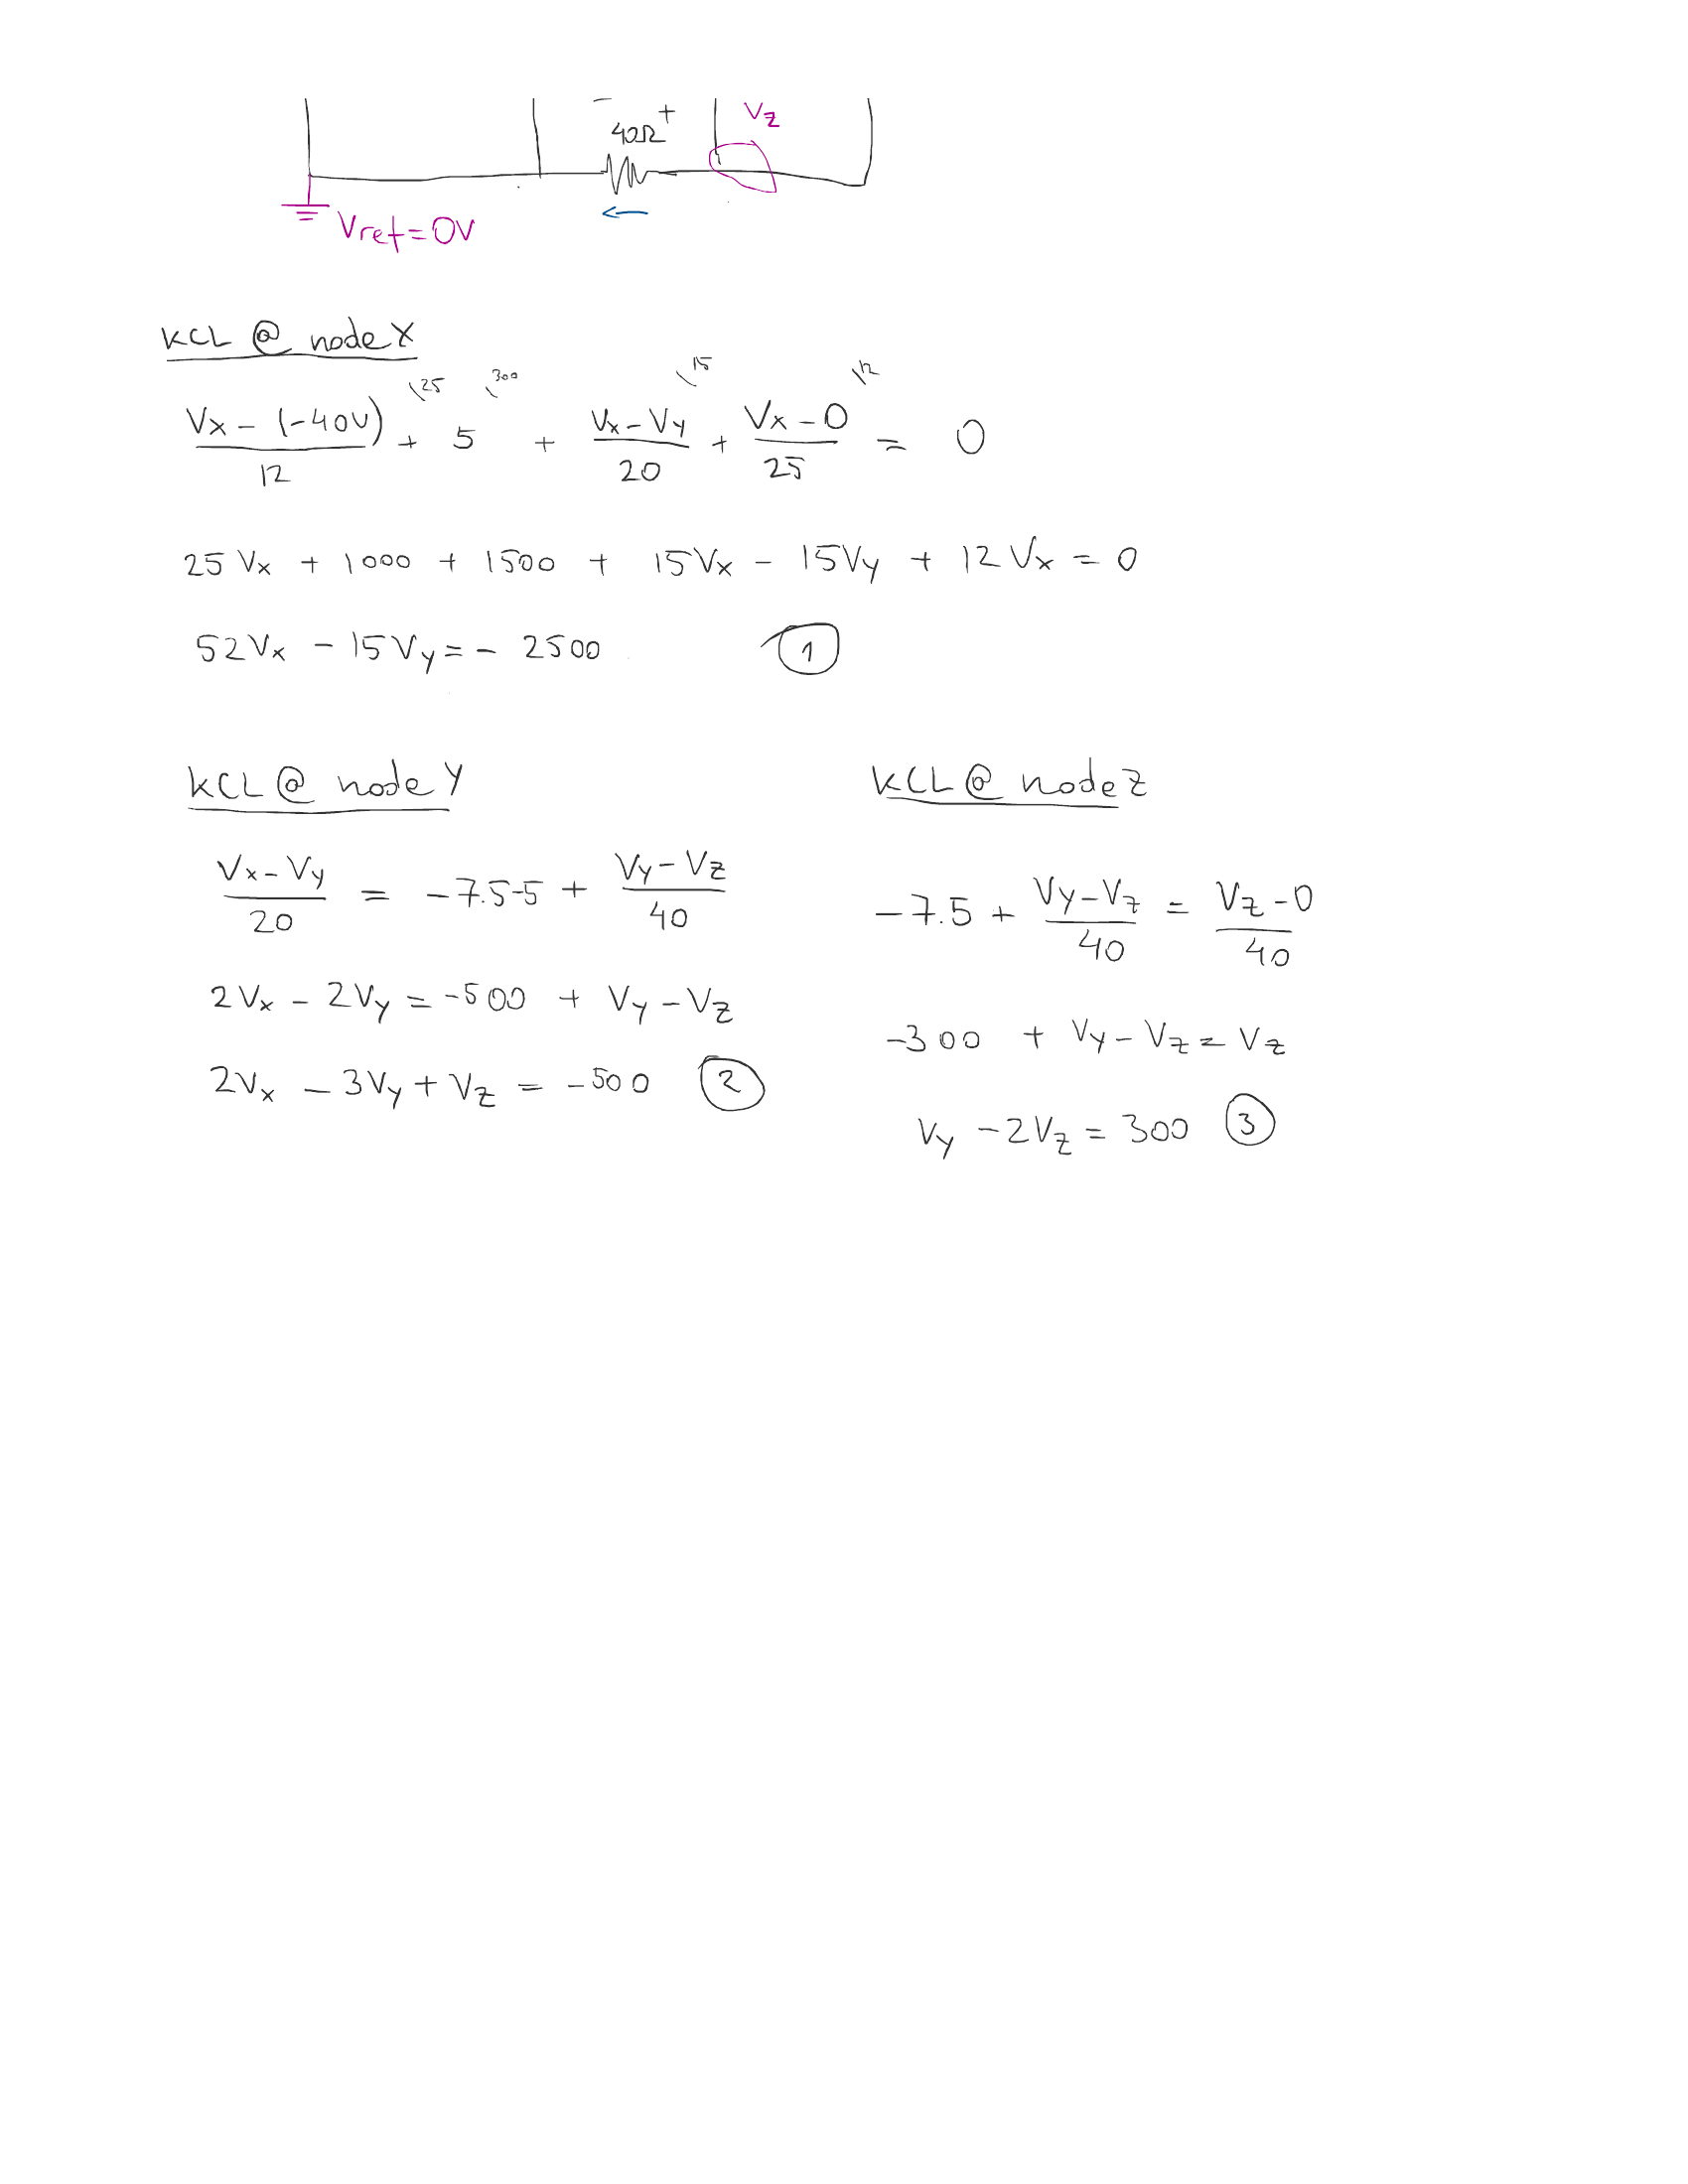 40Ω + Vz
Vref=0V
KCL @ node X
\25 \300 \15 \12
Vx - (-40V) / 12 + 5 + Vx - Vy / 20 + Vx - 0 / 25 = 0
25 Vx + 1000 + 1500 + 15Vx - 15Vy + 12 Vx = 0
52Vx - 15Vy = - 2500 ①
KCL @ node Y
Vx - Vy / 20 = -7.5-5 + Vy - Vz / 40
2Vx - 2Vy = -500 + Vy - Vz
2Vx - 3Vy + Vz = -500 ②
KCL @ node Z
-7.5 + Vy - Vz / 40 = Vz - 0 / 40
-300 + Vy - Vz = Vz
Vy - 2Vz = 300 ③